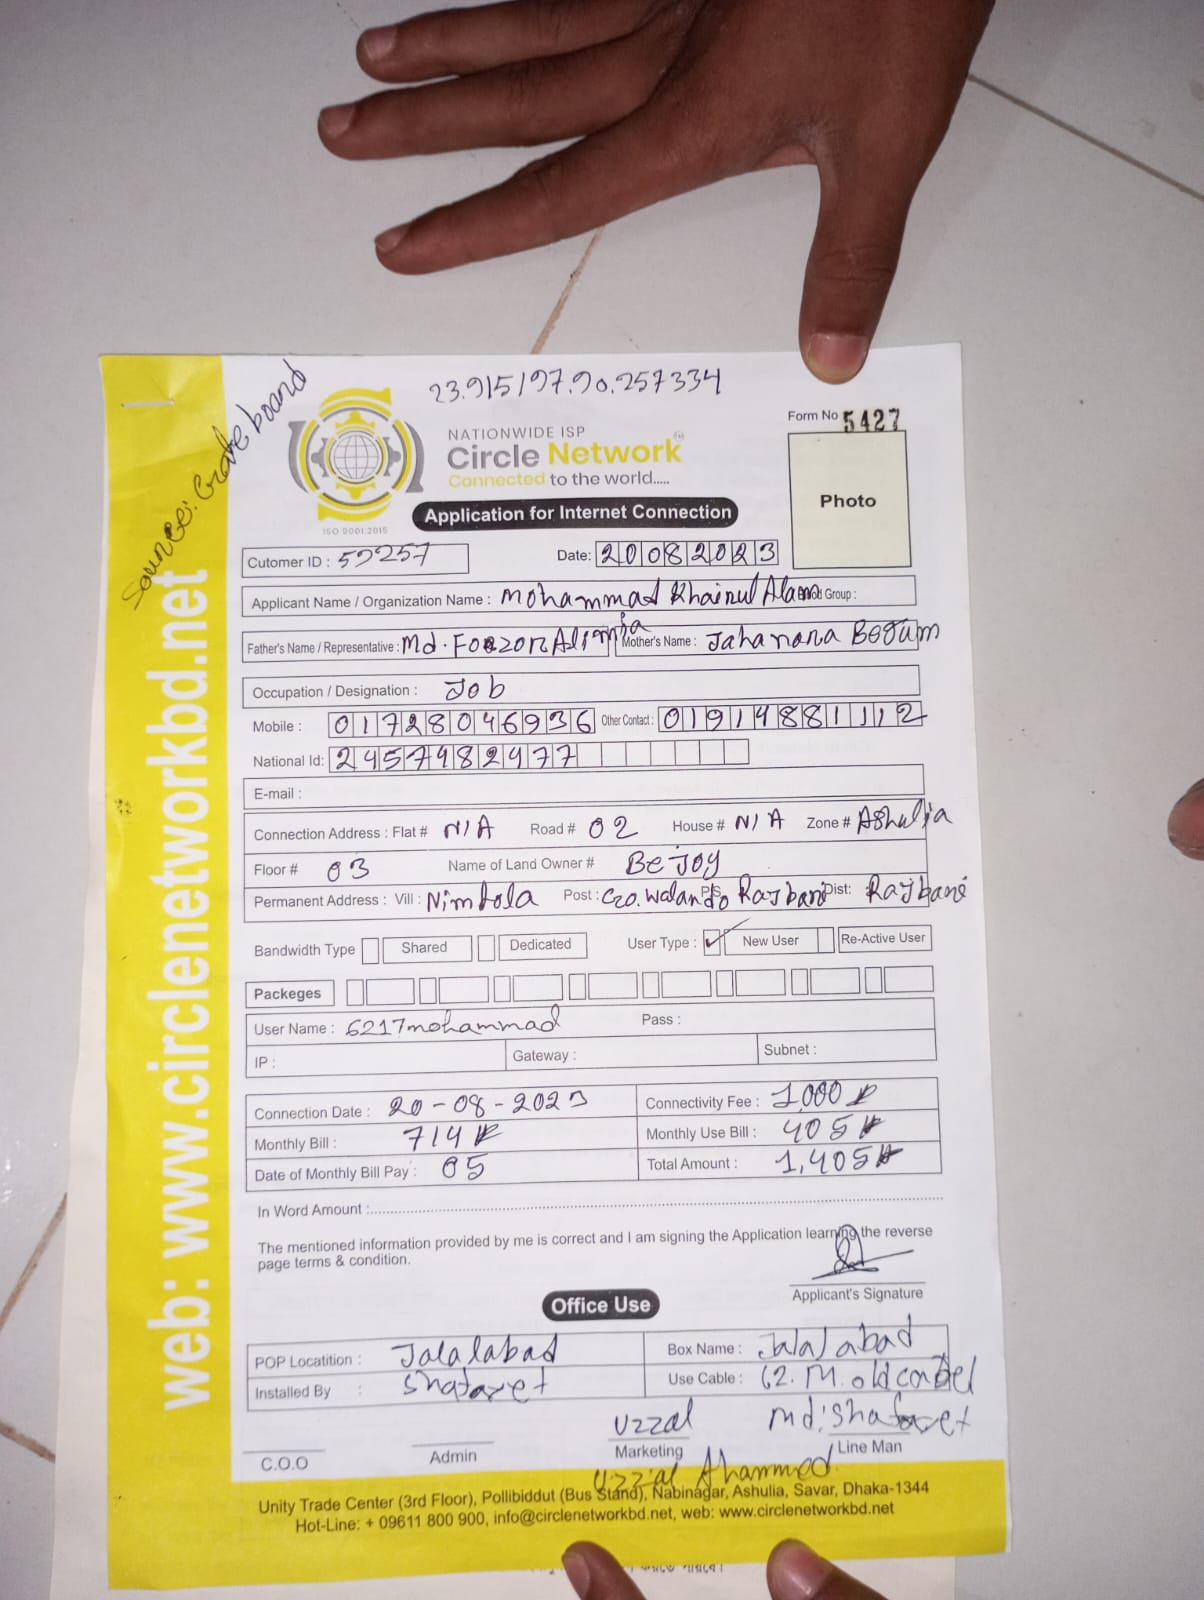 23.915197.90.257334
Source: Grate board
NATIONWIDE ISP
Circle Network
Connected to the world.....
ISO 9001:2015
Form No 5427
Photo
Application for Internet Connection
Cutomer ID : 59257 Date: 20082023
Applicant Name / Organization Name : Mohammad Khairul Alam Group :
Father's Name / Representative : Md. Alimia Mother's Name : Jahanara Begum
Occupation / Designation : Job
Mobile : 01728046936 Other Contact : 01914881112
National Id: 2457982977
E-mail :
Connection Address : Flat # N/A Road # 02 House # N/A Zone # Ashulia
Floor # 03 Name of Land Owner # BeJoy
Permanent Address : Vill : Nimtola Post : Goalando P/S Rajbari Dist: Rajbari
Bandwidth Type Shared Dedicated User Type : ✓ New User Re-Active User
Packeges
User Name : 6217mohammad Pass :
IP : Gateway : Subnet :
Connection Date : 20-08-2023 Connectivity Fee : 1,000
Monthly Bill : 714 Monthly Use Bill : 405
Date of Monthly Bill Pay : 05 Total Amount : 1,405
In Word Amount :
The mentioned information provided by me is correct and I am signing the Application learning the reverse
page terms & condition.
Applicant's Signature
Office Use
POP Locatition : Jalalabad Box Name : Jalalabad
Installed By : Shafaret Use Cable : 62. M. old cabel
Uzzal Md: Shafaret
C.O.O Admin Marketing Line Man
Uzzal Ahammed
Unity Trade Center (3rd Floor), Pollibiddut (Bus Stand), Nabinagar, Ashulia, Savar, Dhaka-1344
Hot-Line: + 09611 800 900, info@circlenetworkbd.net, web: www.circlenetworkbd.net
web: www.circlenetworkbd.net